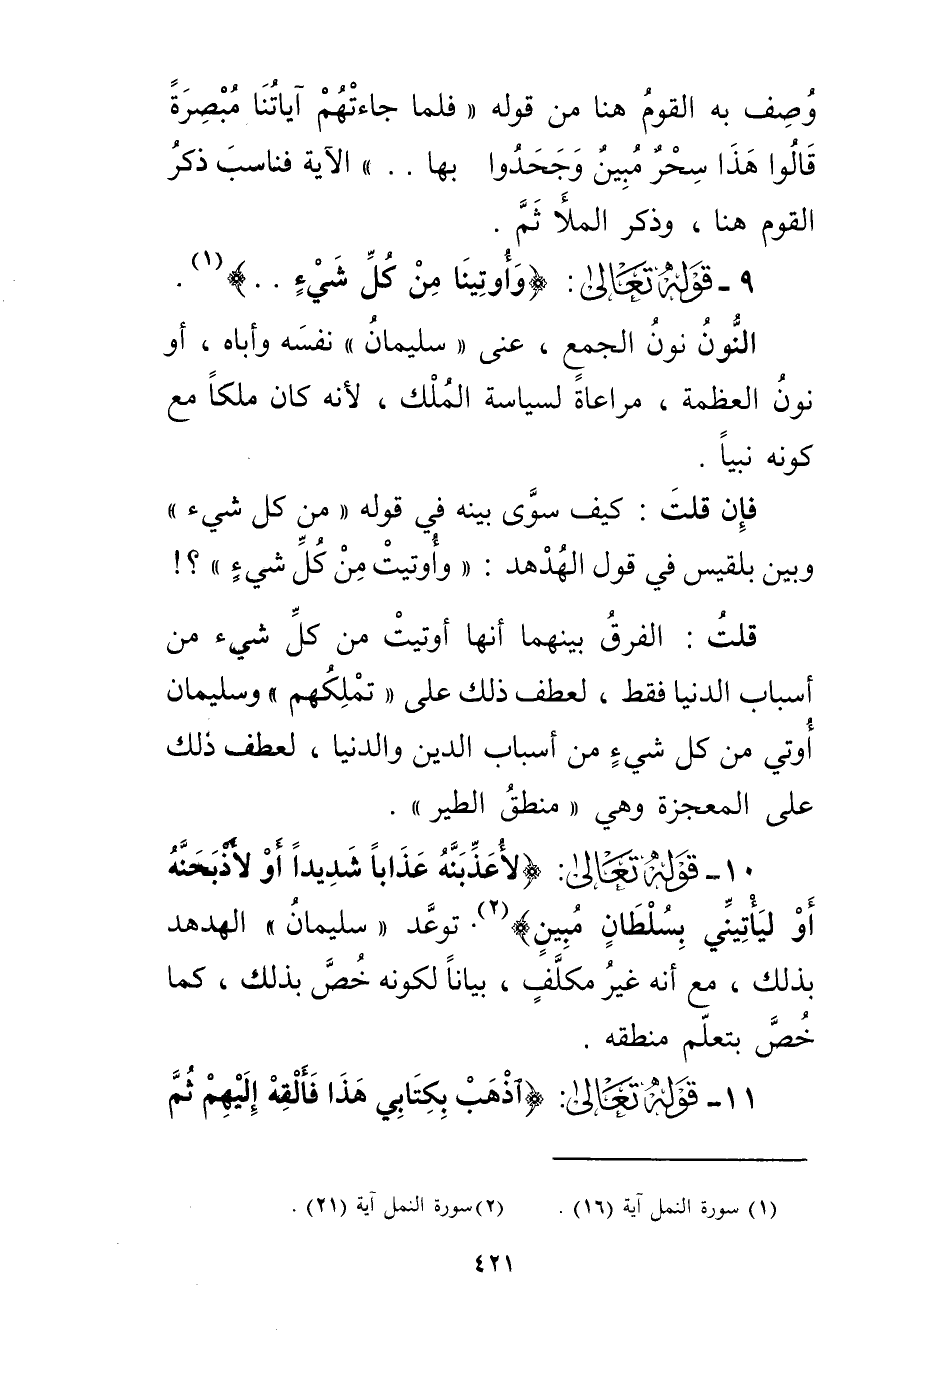 وُصِف به القومُ هنا من قوله « فلما جاءتْهُمْ آياتُنَا مُبْصِرَةً
قَالُوا هَذَا سِحْرٌ مُبِينٌ وَجَحَدُوا بها . . » الآية فناسبَ ذكرُ
القوم هنا ، وذكر الملأَ ثَمَّ .
٩ ـ قَوْلُهُ تَعَالَىٰ : ﴿وَأُوتِينَا مِنْ كُلِّ شَيْءٍ . .﴾(١) .
النُّونُ نونُ الجمع ، عنى « سليمانُ » نفسَه وأباه ، أو
نونُ العظمة ، مراعاةً لسياسة المُلْك ، لأنه كان ملكاً مع
كونه نبياً .
فإِن قلتَ : كيف سوَّى بينه في قوله « من كل شيء »
وبين بلقيس في قول الهُدْهد : « وأُوتيتْ مِنْ كُلِّ شيءٍ » ؟!
قلتُ : الفرقُ بينهما أنها أوتيتْ من كلِّ شيء من
أسباب الدنيا فقط ، لعطف ذلك على « تمْلِكُهم » وسليمان
أُوتي من كل شيءٍ من أسباب الدين والدنيا ، لعطف ذلك
على المعجزة وهي « منطقُ الطير » .
١٠ ـ قَوْلُهُ تَعَالَىٰ : ﴿لأُعَذِّبَنَّهُ عَذَاباً شَدِيداً أَوْ لأَذْبَحَنَّهُ
أَوْ لَيَأْتِيَنِّي بِسُلْطَانٍ مُبِينٍ﴾(٢). توعَّد « سليمانُ » الهدهد
بذلك ، مع أنه غيرُ مكلَّفٍ ، بياناً لكونه خُصَّ بذلك ، كما
خُصَّ بتعلّم منطقه .
١١ ـ قَوْلُهُ تَعَالَىٰ : ﴿ٱذْهَبْ بِكِتَابِي هَذَا فَأَلْقِهْ إِلَيْهِمْ ثُمَّ
(١) سورة النمل آية (١٦) . (٢) سورة النمل آية (٢١) .
٤٢١